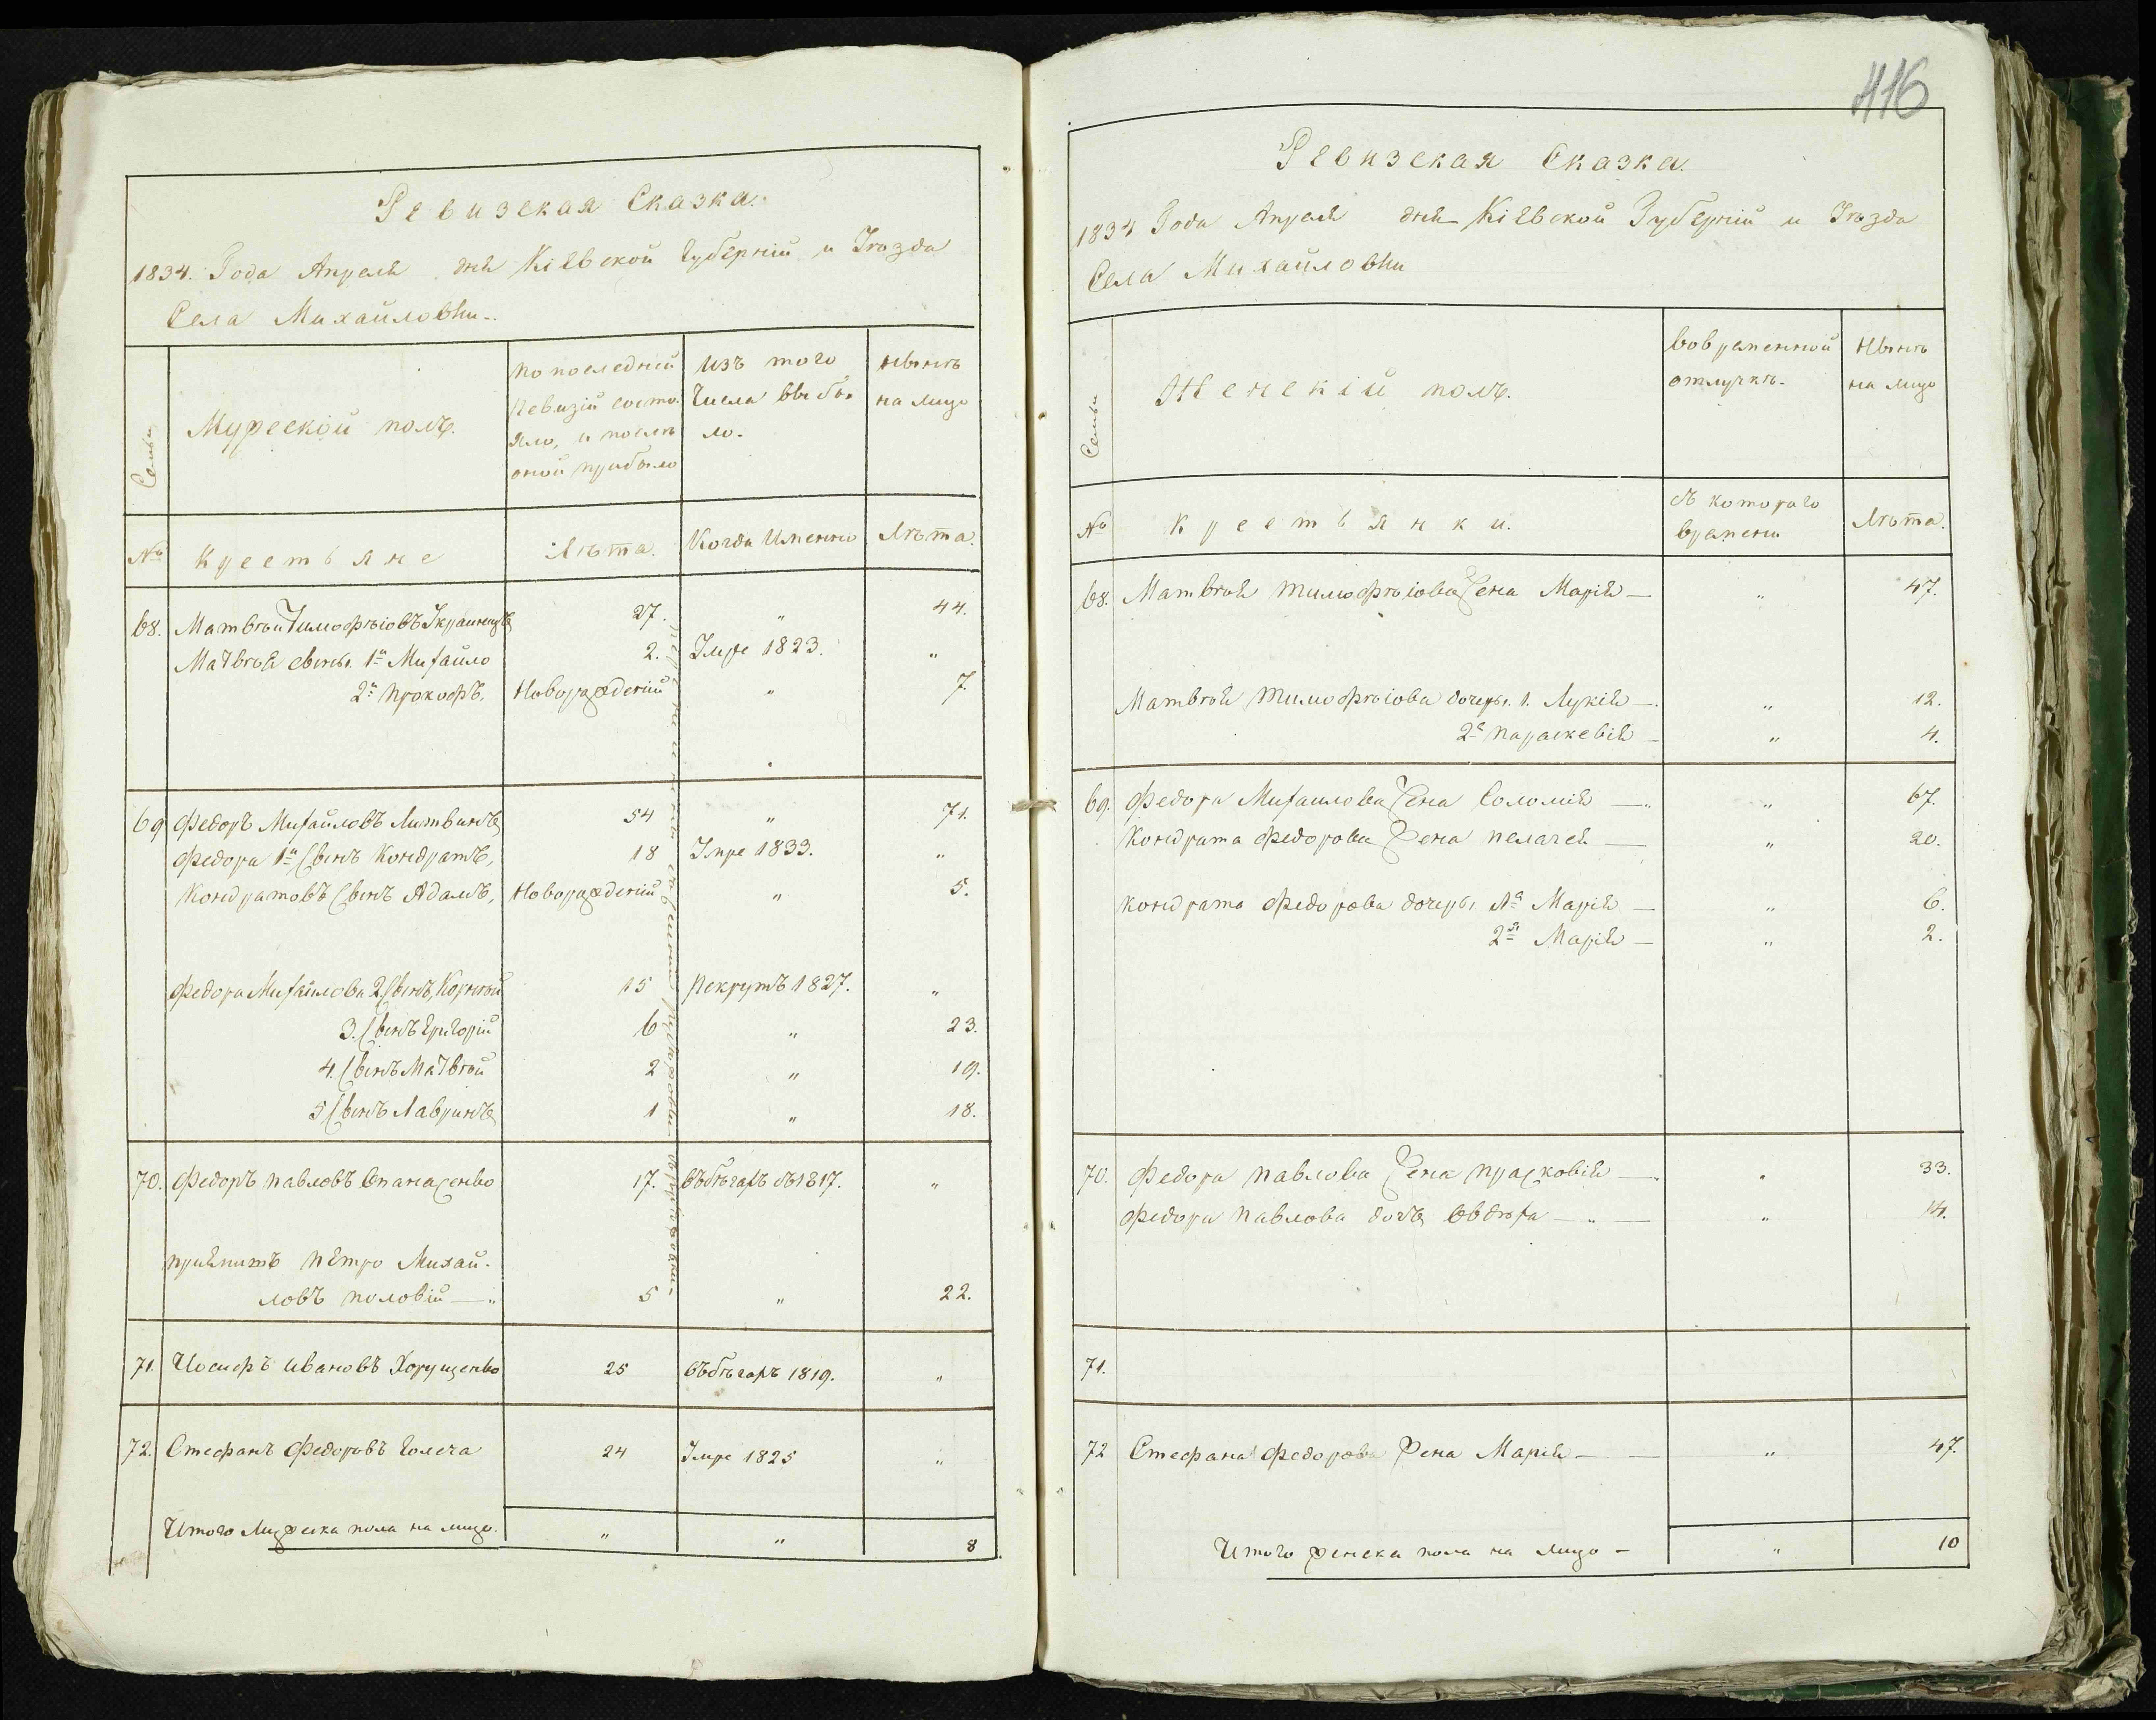 Ревизская Сказка.
1834. Года Апреля дня Кіевской Губерніи и Уѣзда
Села Михайловки.
Семьи
Мужескій полъ.
По последней
Ревизіи состо
яло, и послѣ
оной прибыло
Изъ того
Числа выбы
ло.
Нынѣ
на лицо
№
Крестьяне
Лѣта.
Когда Именно
Лѣта.
68. Матвѣй Тимофѣіовъ Украинецъ 27. „ 44.
Матвѣя сыны 1й Михайло 2. Умре 1823. „
2й Прокофъ, Новорожденій „ 7.
69 Федоръ Михайловъ Литвинъ 54 „ 71.
Федора 1й Сынъ Кондратъ, 18 Умре 1833. „
Кондратовъ Сынъ Адамъ, Новорожденій „ 5.
Федора Михайлова 2 Сынъ, Корній 15 Рекрутъ 1827. „
3. Сынъ Григорій 6 „ 23.
4. Сынъ Матвѣй 2 „ 19.
5 Сынъ Лавринъ 1 „ 18.
70. Федоръ Павловъ Опанасенко 17. Въбѣгахъ съ 1817. „
Приймитъ Пётро Михай-
ловъ Половій — „ 5 „ 22.
71. Иосифъ Ивановъ Хорущенко 25 Въбѣгахъ 1819. „
72. Стефанъ Федоровъ Голеча 24 Умре 1825 „
Итого Мужеска пола на лицо. „ „ 8
416
Ревизская Сказка.
1834 Года Апреля дня Кіевской Губерніи и Уѣзда
Села Михайловки
Семьи
Женскій полъ.
Вовременной
отлучкѣ.
Нынѣ
на лицо
№
Крестьянки.
Съ котораго
времени
Лѣта.
68. Матвѣя Тимофѣіова Жена Марія — „ 47.
Матвѣя Тимофѣіова дочеры. 1. Лукія — „ 12.
2я Параскевія — „ 4.
69. Федора Михаилова Жена Соломія — „ „ 67.
Кондрата Федорова Жена Пелагея — „ 20.
Кондрата Федорова дочеры 1я Марія — „ 6.
2я Марія — „ 2.
70. Федора Павлова Жена Прасковія — „ 33.
Федора Павлова дочъ Явдоха — „ — „ 14.
71.
72 Стефана Федорова Жена Марія — — „ 47.
Итого женска пола на лицо — „ 10